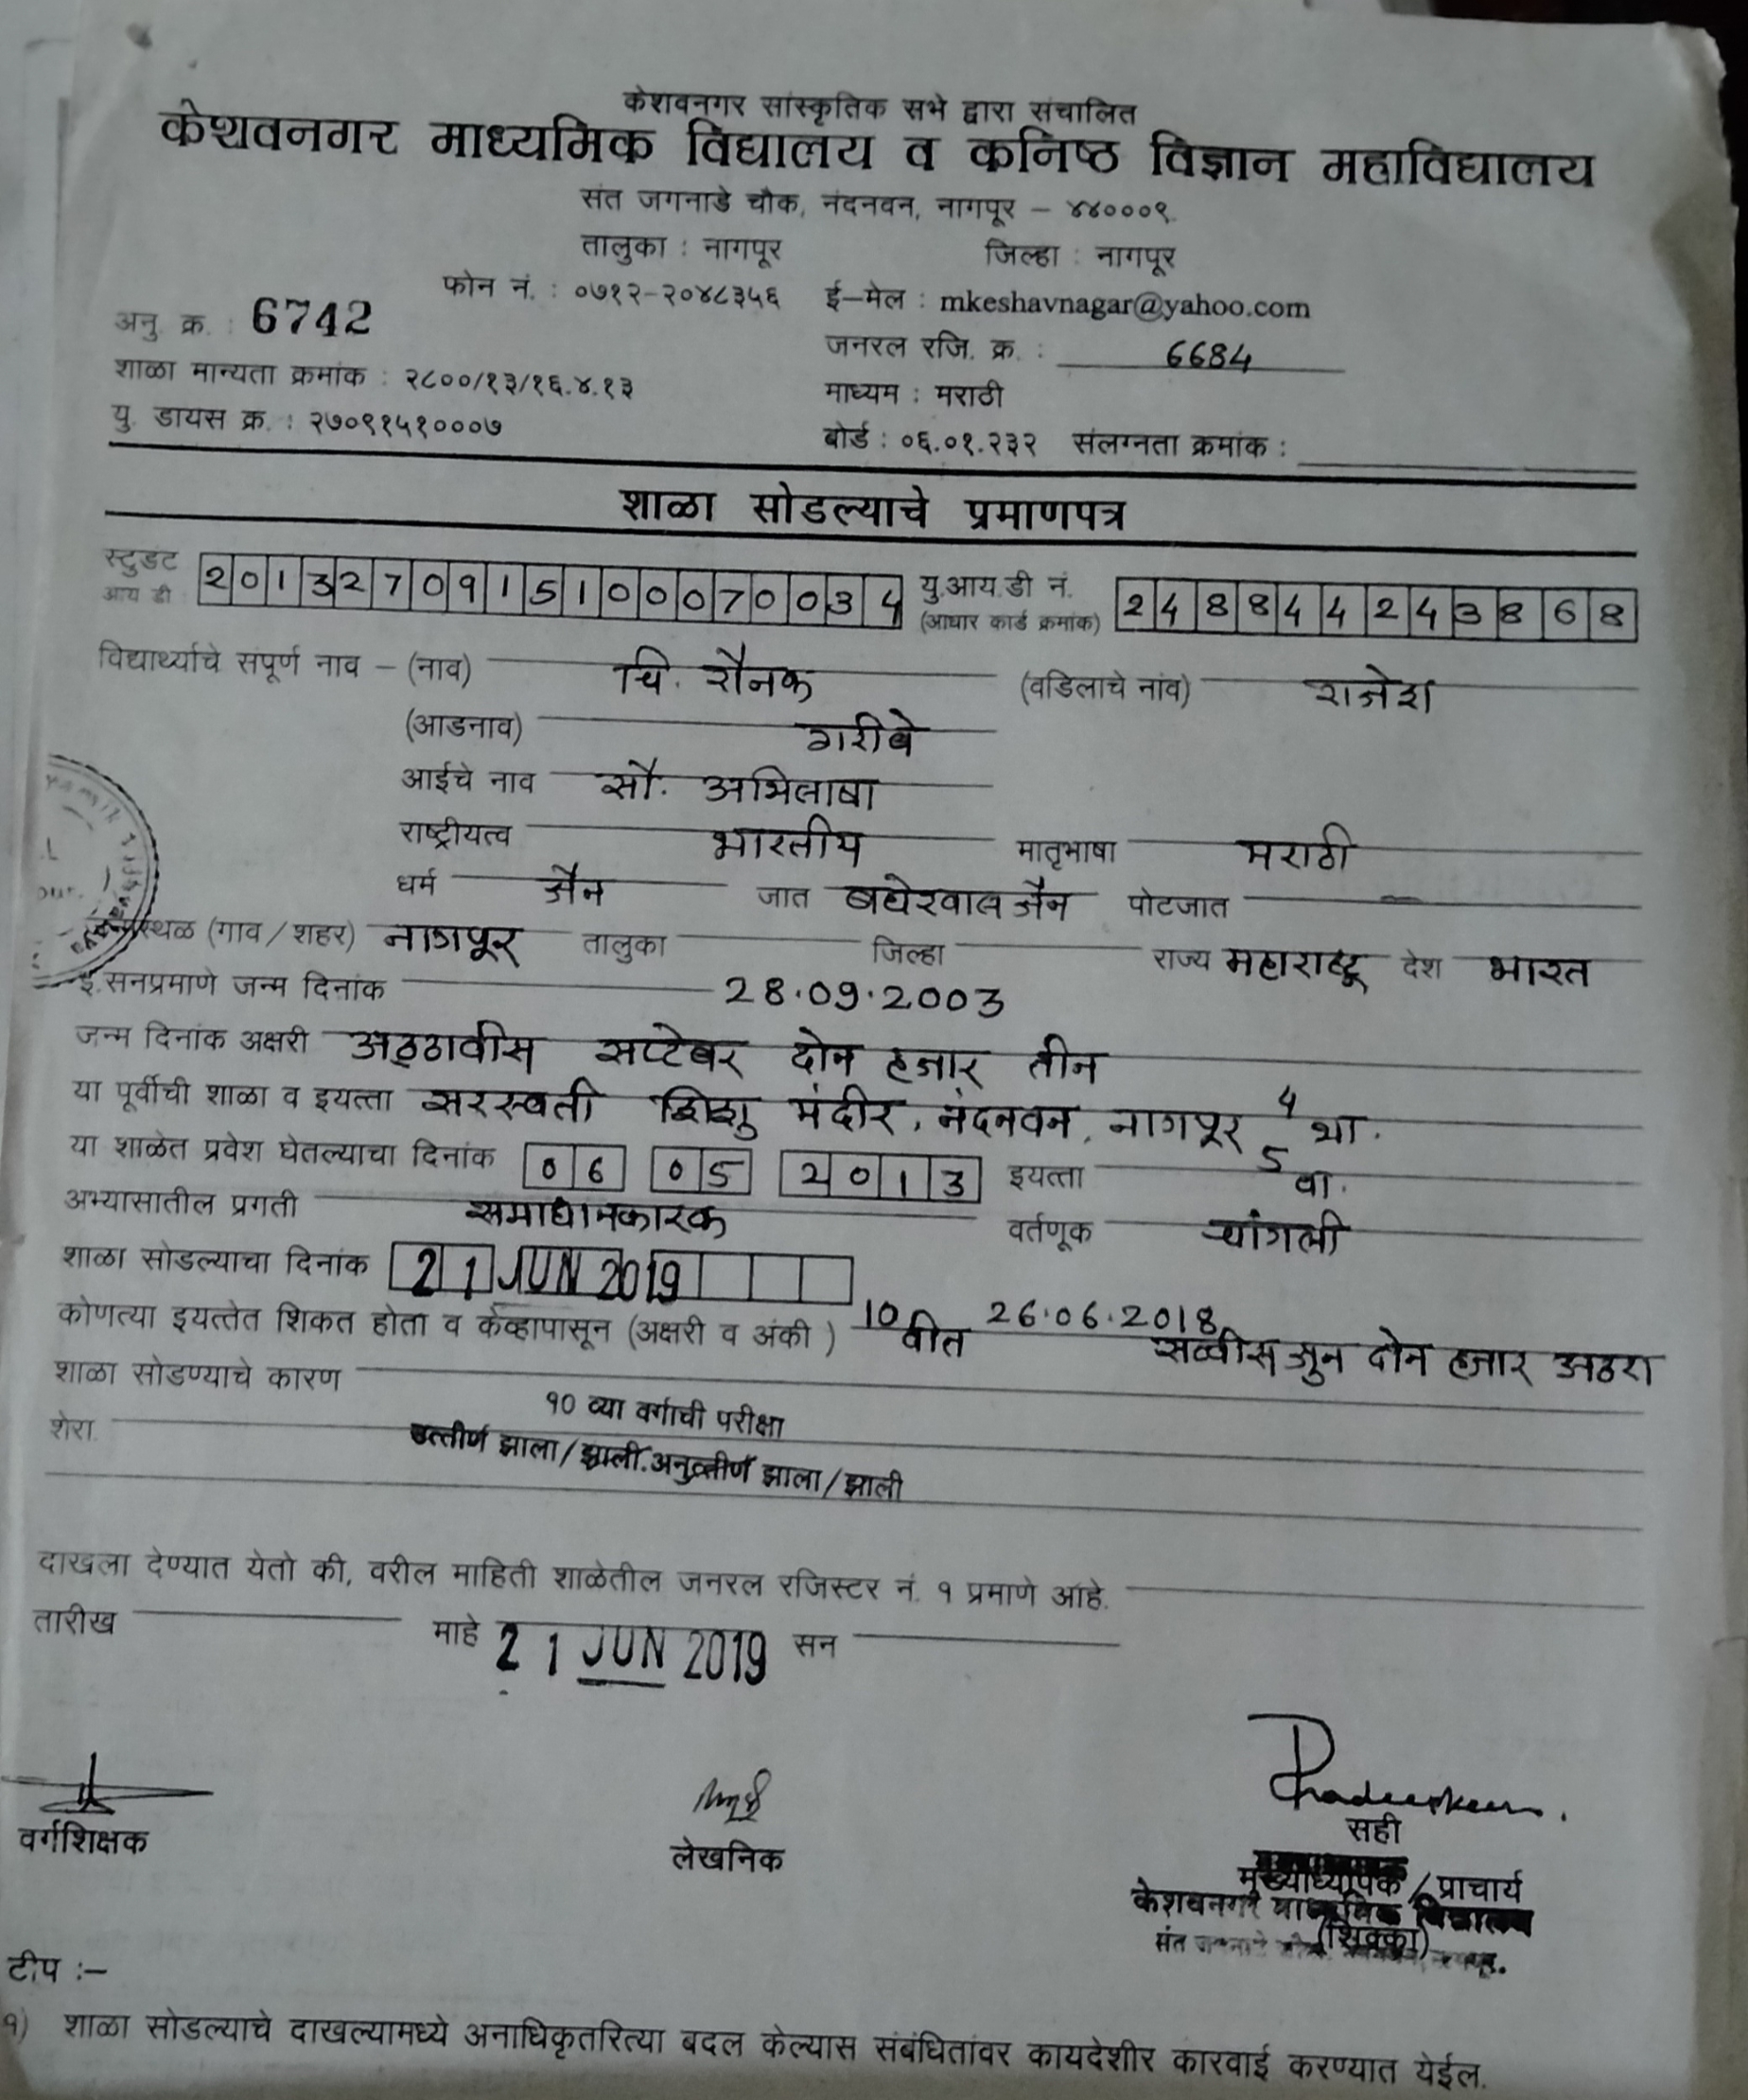 केशवनगर सांस्कृतिक सभे द्वारा संचालित
केशवनगर माध्यमिक विद्यालय व कनिष्ठ विज्ञान महाविद्यालय
संत जगनाडे चौक, नंदनवन, नागपूर – ४४०००९.
तालुका : नागपूर जिल्हा : नागपूर
फोन नं. : ०७१२-२०४८३५६ ई-मेल : mkeshavnagar@yahoo.com
अनु. क्र. : 6742
जनरल रजि. क्र. : 6684
शाळा मान्यता क्रमांक : २८००/१३/१६.४.१३ माध्यम : मराठी
यु. डायस क्र. : २७०९१५१०००७ बोर्ड : ०६.०१.२३२ संलग्नता क्रमांक :
शाळा सोडल्याचे प्रमाणपत्र
स्टुडंट आय डी 2013270915100070034 यु.आय.डी नं. (आधार कार्ड क्रमांक) 248844243868
विद्यार्थ्याचे संपूर्ण नाव – (नाव) चि. रौनक (वडिलाचे नांव) राजेश
(आडनाव) गरीबे
आईचे नाव सौ. अभिलाषा
राष्ट्रीयत्व भारतीय मातृभाषा मराठी
धर्म जैन जात बघेरवाल जैन पोटजात —
स्थळ (गाव/शहर) नागपूर तालुका जिल्हा राज्य महाराष्ट्र देश भारत
इ.सनप्रमाणे जन्म दिनांक 28.09.2003
जन्म दिनांक अक्षरी अठ्ठावीस सप्टेंबर दोन हजार तीन
या पूर्वीची शाळा व इयत्ता सरस्वती शिशु मंदीर, नंदनवन, नागपूर 4 था.
या शाळेत प्रवेश घेतल्याचा दिनांक 06 05 2013 इयत्ता 5 वा.
अभ्यासातील प्रगती समाधानकारक वर्तणूक चांगली
शाळा सोडल्याचा दिनांक 21 JUN 2019
कोणत्या इयत्तेत शिकत होता व केव्हापासून (अक्षरी व अंकी) 10 वीत 26.06.2018 सव्वीस जुन दोन हजार अठरा
शाळा सोडण्याचे कारण
१० व्या वर्गाची परीक्षा
शेरा. उत्तीर्ण झाला/झाली.अनुत्तीर्ण झाला/झाली
दाखला देण्यात येतो की, वरील माहिती शाळेतील जनरल रजिस्टर नं. १ प्रमाणे आहे.
तारीख माहे 21 JUN 2019 सन
वर्गशिक्षक लेखनिक सही
मुख्याध्यापक / प्राचार्य
केशवनगर माध्यमिक विद्यालय
(शिक्का)
संत
टीप :–
१) शाळा सोडल्याचे दाखल्यामध्ये अनाधिकृतरित्या बदल केल्यास संबंधितांवर कायदेशीर कारवाई करण्यात येईल.